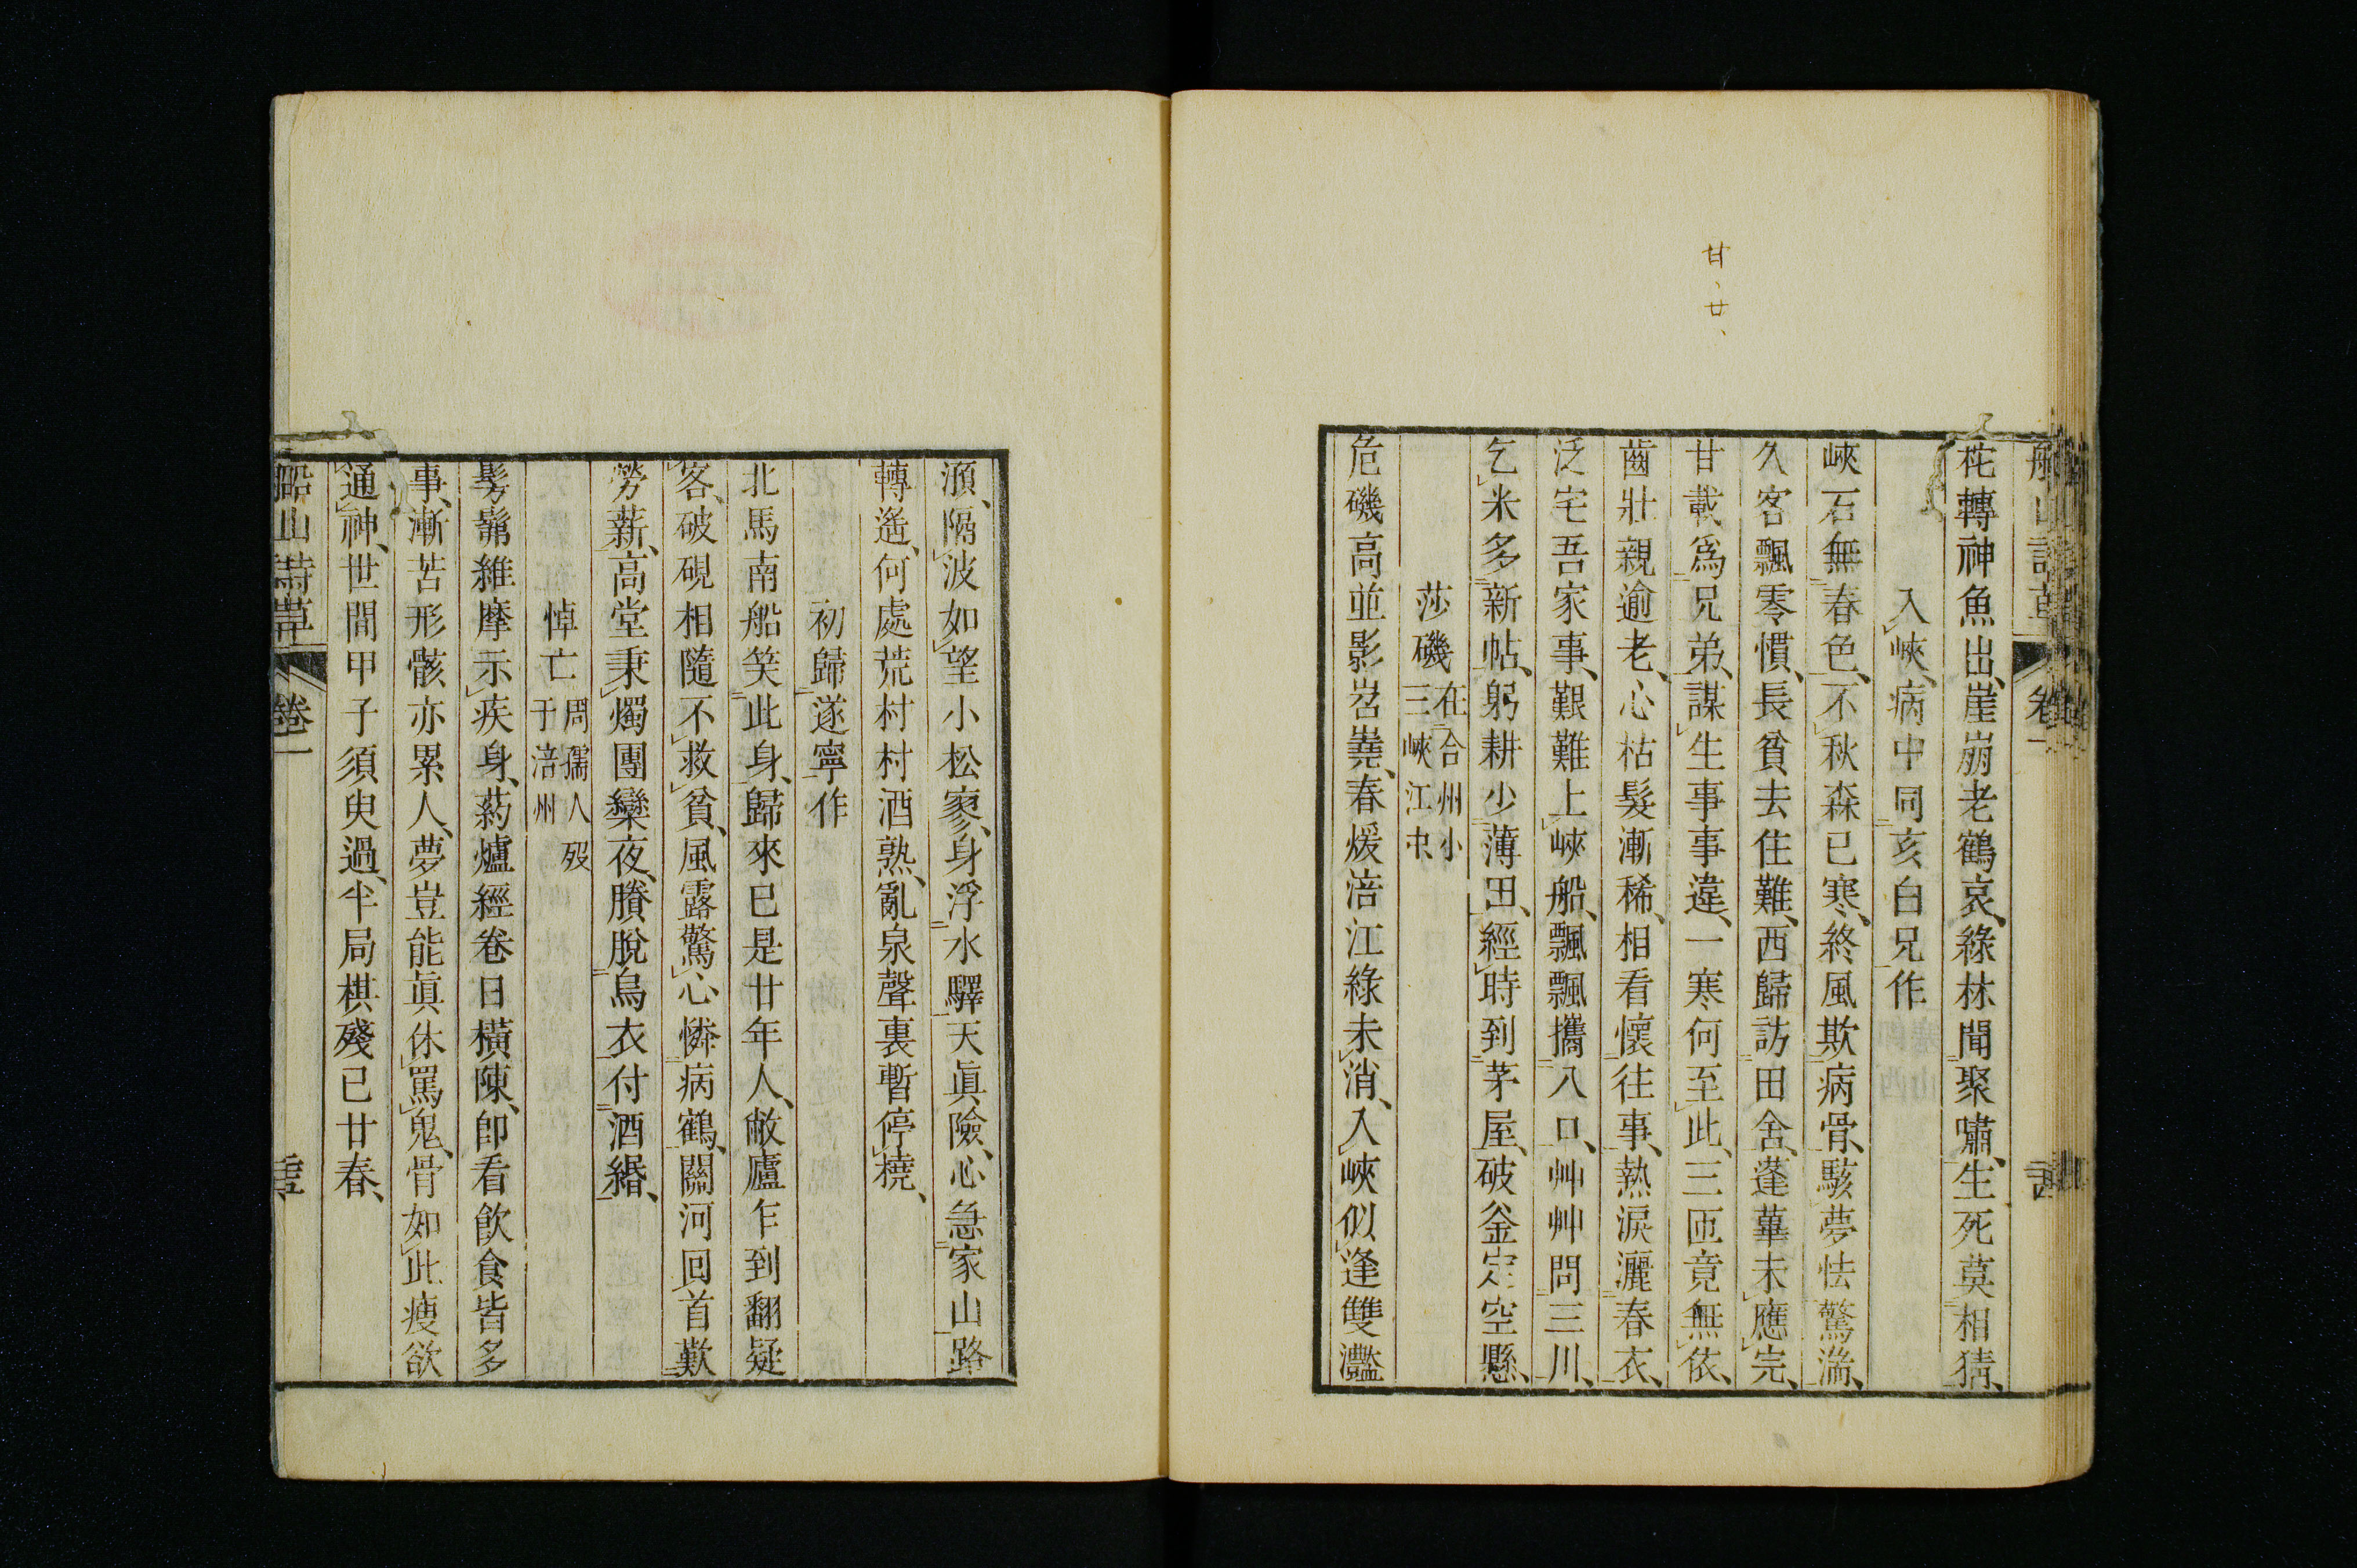 甘、廿、
柁轉神魚出、崖崩老鶴哀、綠林聞聚嘯、生死莫相猜、
入峽、病中同亥白兄作
峽石無春色、不秋森已寒、終風欺病骨、駭夢怯驚湍、
久客飄零慣、長貧去住難、西歸訪田舍、蓬蓽未應完、
甘載爲兄弟、謀生事事違、一寒何至此、三匝竟無依、
齒壯親逾老、心枯髮漸稀、相看懷往事、熱淚灑春衣、
泛宅吾家事、艱難上峽船、飄飄攜八口、艸艸問三川、
乞米多新帖、躬耕少薄田、經時到茅屋、破釜定空懸、
莎磯在合州小三峽江中
危磯高並影岧嶤、春煖涪江綠未消、入峽似逢雙灩
澦、隔波如望小松寥、身浮水驛天眞險、心急家山路
轉遙、何處荒村村酒熟、亂泉聲裏暫停橈、
初歸遂寧作
北馬南船笑此身、歸來已是廿年人、敝廬乍到翻疑
客、破硯相隨不救貧、風露驚心憐病鶴、關河回首歎
勞薪、高堂秉燭團欒夜、賸脫烏衣付酒緡、
悼亡周孺人歿于涪州
髣髴維摩示疾身、葯爐經卷日橫陳、卽看飮食皆多
事、漸苦形骸亦累人、夢豈能眞休罵鬼、骨如此瘦欲
通神、世間甲子須臾過、半局棋殘已廿春、
船山詩草 卷一